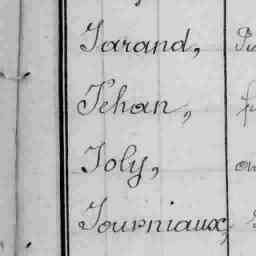 Jarand,
Jehan,
Joly,
Journiaux,